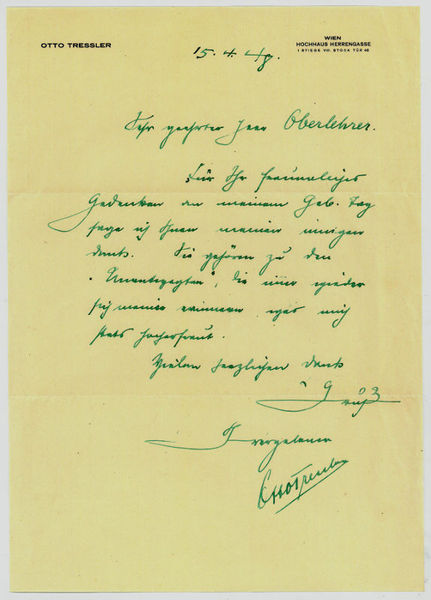 OTTO TRESSLER
WIEN
HOCHHAUS HERRENGASSE
1 STIEGE VII. STOCK TÜR 46
15. 4. 48.
Sehr geehrter Herr Oberlehrer.
Für Ihr freundliches
Gedenken an meinem Geb. tag
sage ich Ihnen meinen innigen
Dank. Sie gehören zu den
"Unentwegten", die immer wieder
sich meiner erinnern, was mich
stets hocherfreut.
Vielen herzlichen Dank
u. Gruß
Ihr ergebener
Otto Tressler